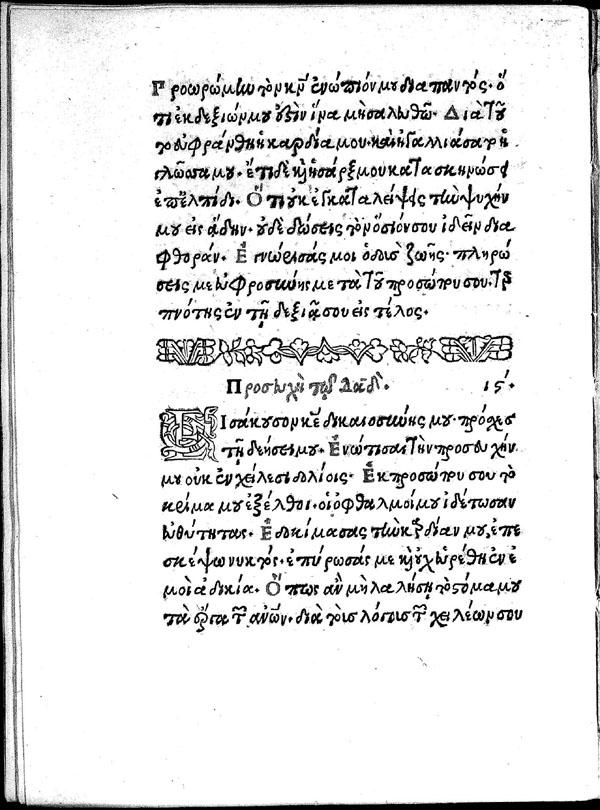 Προωρώμην τὸν κν̄ ἐνώπιόν μου διαπαντός. ὅ
τι ἐκ δεξιῶν μου ἐστὶν ἵνα μὴ σαλευθῶ. Διὰ τοῦ
το εὐφράνθη ἡ καρδία μου. καὶ ἠγαλλιάσατο ἡ
γλῶσσα μου. ἔτι δὲ καὶ ἡ σάρξ μου κατασκηνώσει
ἐπ' ἐλπίδι. Ὅτι οὐκ ἐγκαταλείψεις τὴν ψυχήν
μου εἰς ᾅδην. οὐδὲ δώσεις τὸν ὅσιόν σου ἰδεῖν δια
φθοράν. Ἐγνώρισάς μοι ὁδοὺς ζωῆς. πληρώ
σεις με εὐφροσύνης μετὰ τοῦ προσώπου σου. τερ
πνότης ἐν τῇ δεξιᾷ σου εἰς τέλος.
Προσευχὴ τοῦ Δαδ̄. ιϛ́.
Εἰσάκουσον κε̄ δικαιοσύνης μου. πρόσχες
τῇ δεήσει μου. Ἐνώτισαι τὴν προσευχήν
μου οὐκ ἐν χείλεσι δολίοις. Ἐκ προσώπου σου τὸ
κρίμα μου ἐξέλθοι. οἱ ὀφθαλμοί μου ἰδέτωσαν
εὐθύτητας. Ἐδοκίμασας τὴν καρδίαν μου, ἐπε
σκέψω νυκτός. ἐπύρωσάς με καὶ οὐχ εὑρέθη ἐν ἐ
μοὶ ἀδικία. Ὅπως ἂν μὴ λαλήσῃ τὸ στόμα μου
τὰ ἔργα τῶν ανῶν̄. διὰ τοὺς λόγους τῶν χειλέων σου